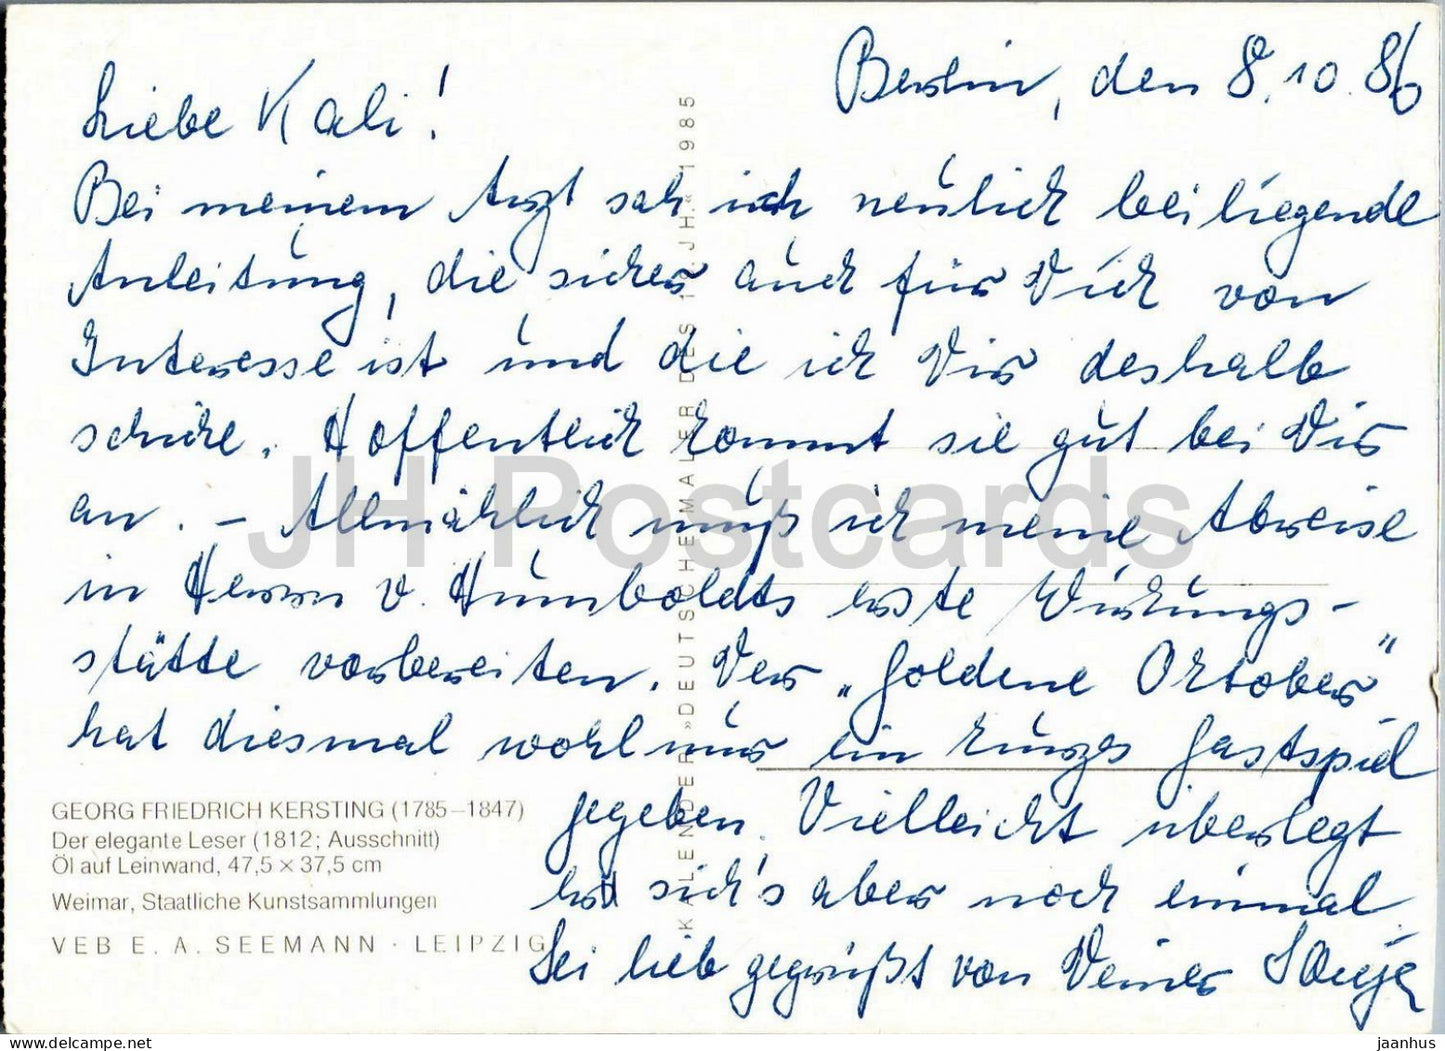 Berlin, den 8.10.86
Liebe Kali!
Bei meinem Arzt sah ich neulich beiliegende
Anleitung, die sicher auch für Dich von
Interesse ist und die ich Dir deshalb
schicke. Hoffentlich kommt sie gut bei Dir
an. – Allmählich muß ich meine Abreise
in Herrn v. Humboldts erste Wirkungs-
stätte vorbereiten. Der „Goldene Oktober"
hat diesmal wohl nur ein kurzes Gastspiel
gegeben. Vielleicht überlegt
er sich's aber noch einmal.
Sei lieb gegrüßt von Deiner
GEORG FRIEDRICH KERSTING (1785–1847)
Der elegante Leser (1812; Ausschnitt)
Öl auf Leinwand, 47,5 × 37,5 cm
Weimar, Staatliche Kunstsammlungen
VEB E. A. SEEMANN · LEIPZIG
KALENDER »DEUTSCHE MALER DES 19. JH.« 1985
JH Postcards
www.delcampe.net
jaanhus